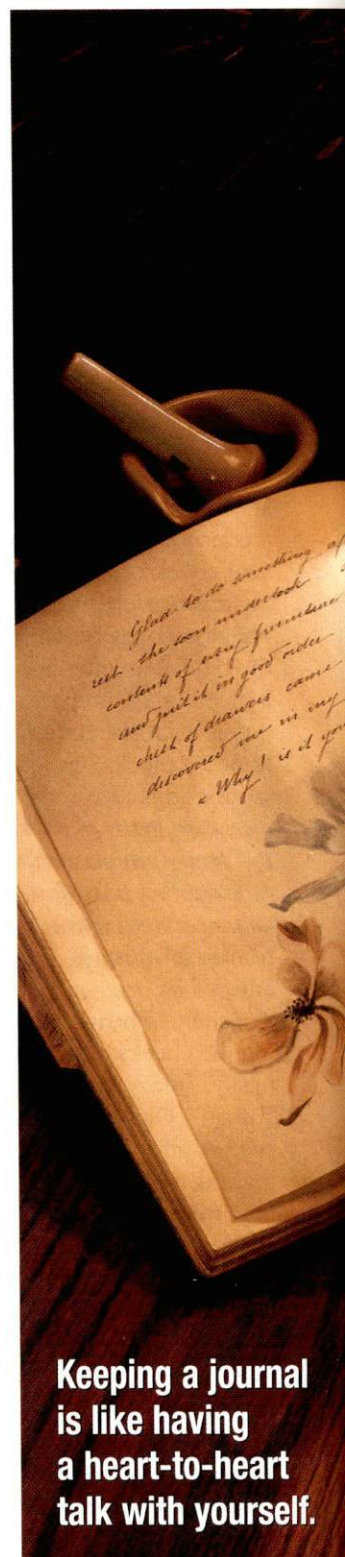 Glad to do something of
rest. She soon undertook
contents of every furniture
and put it in good order
chest of drawers came
discovered me in my
« Why! is it you
Keeping a journal
is like having
a heart-to-heart
talk with yourself.